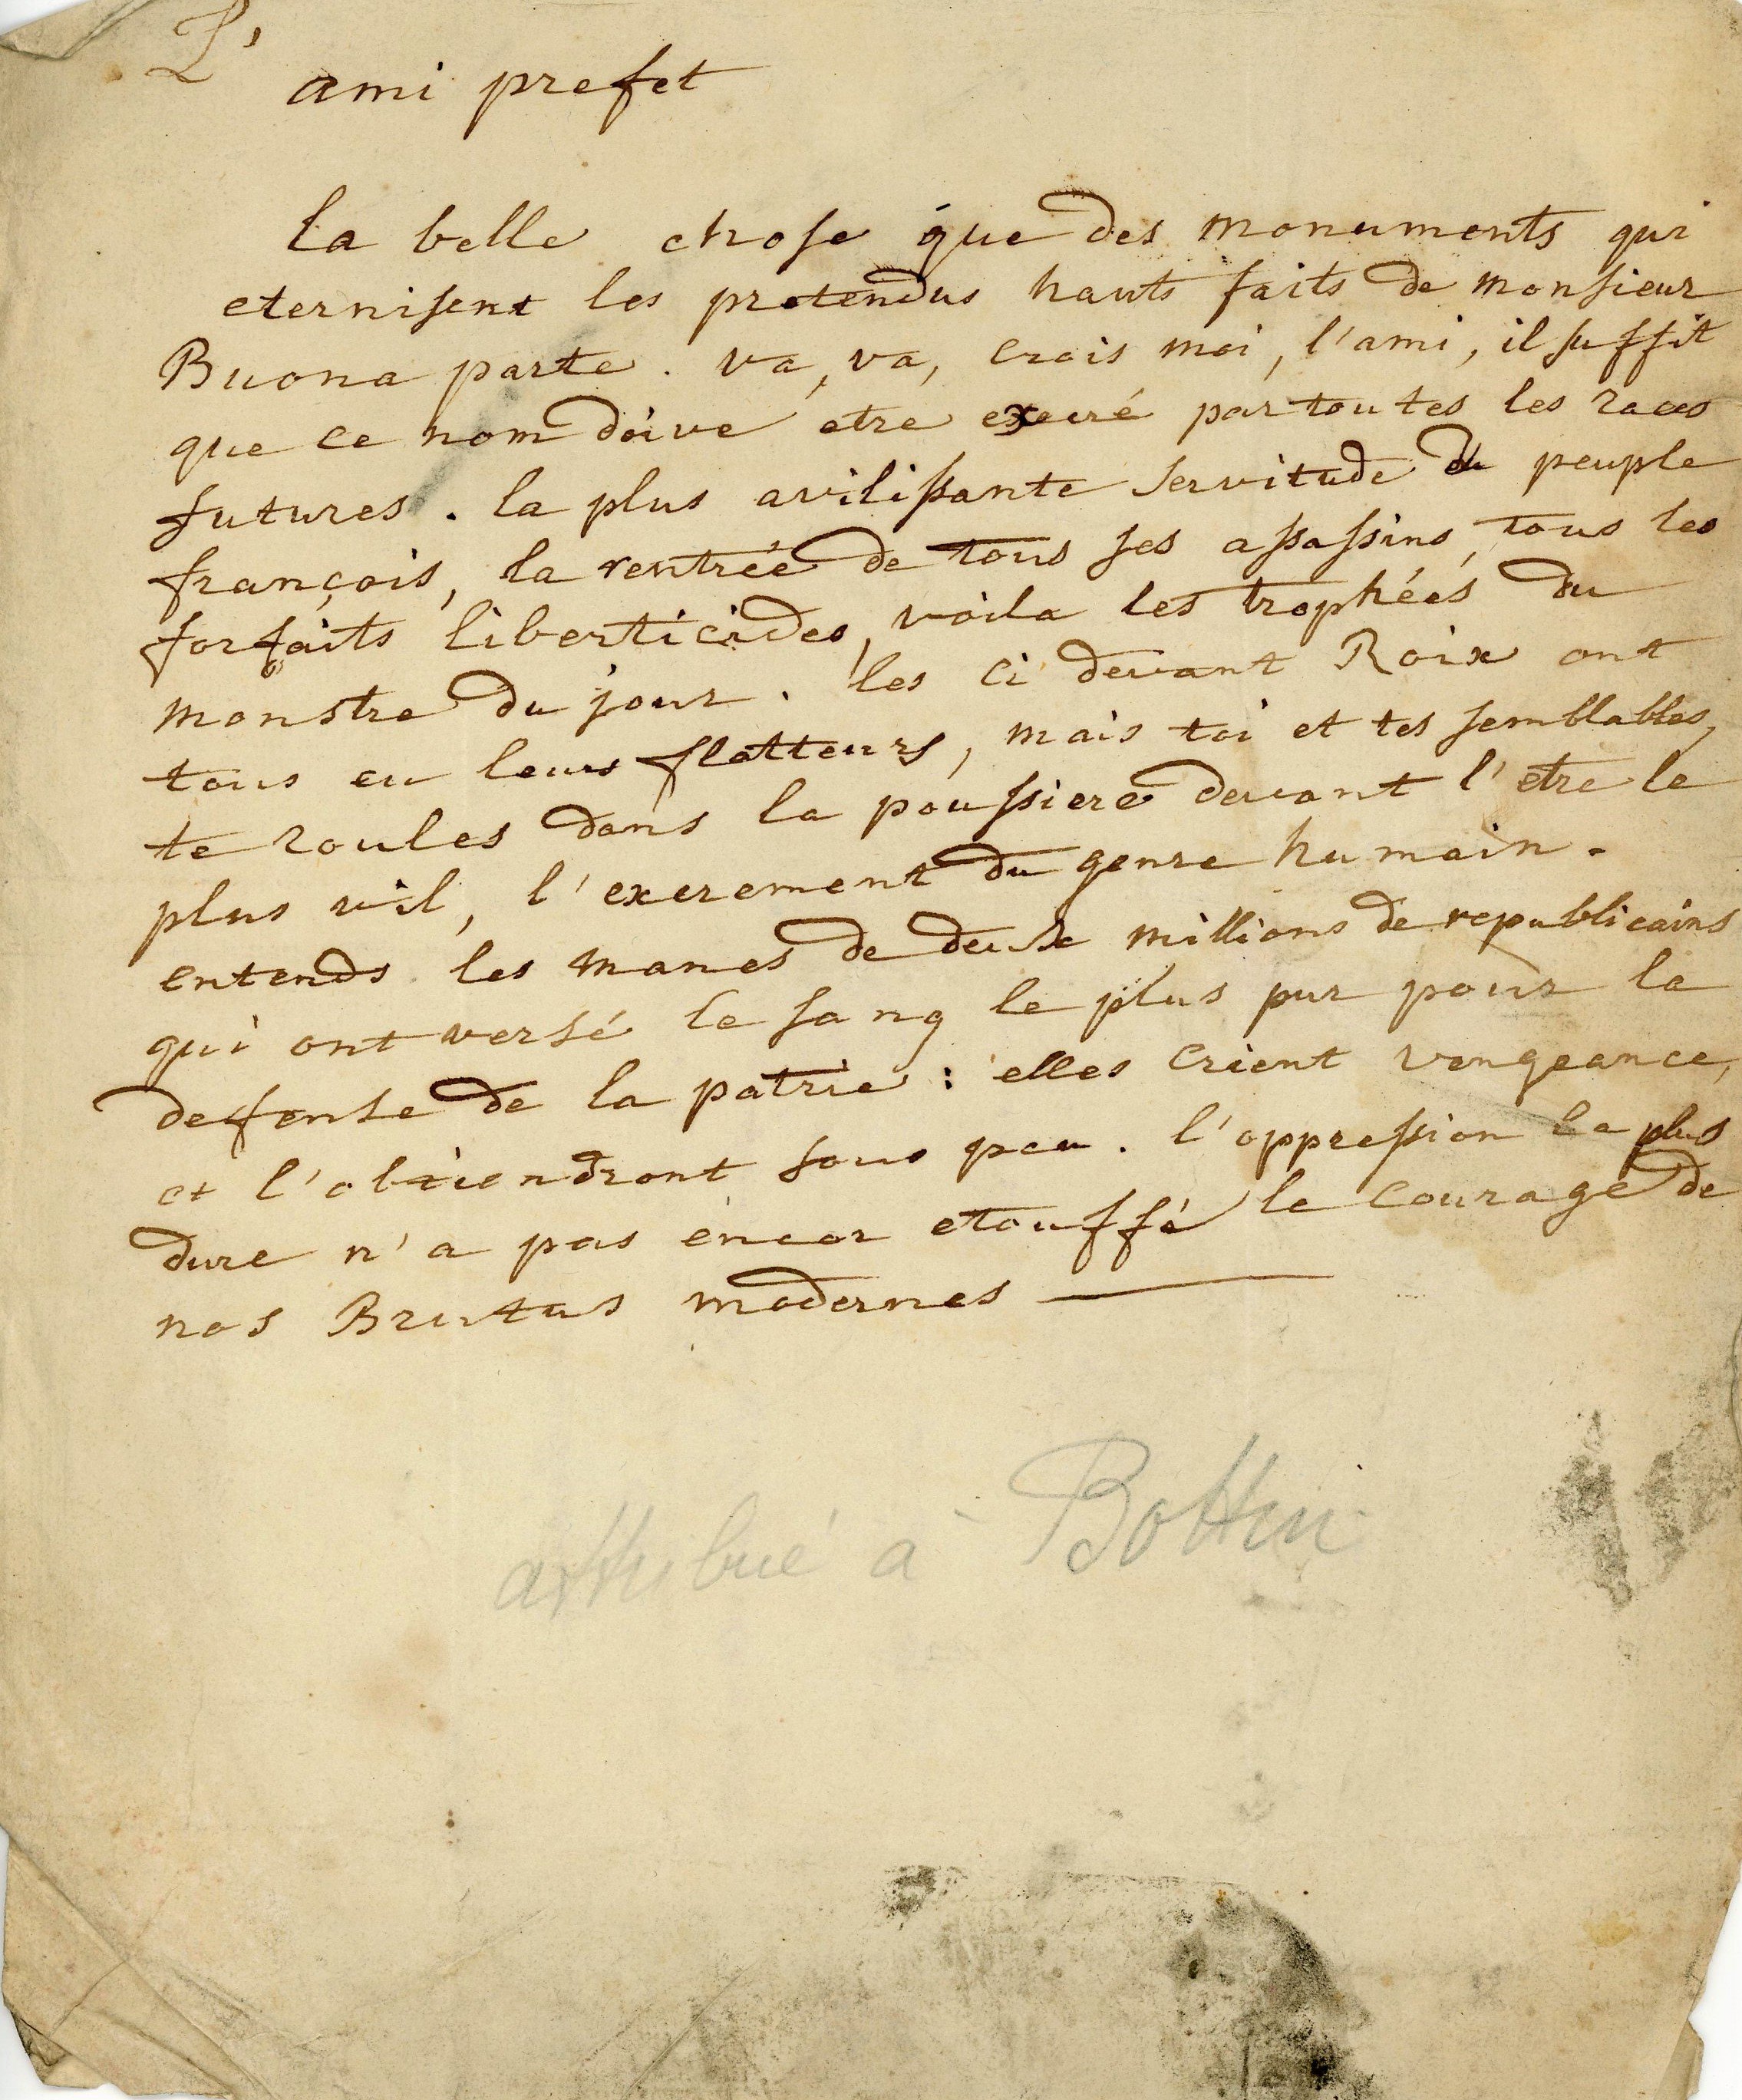 L'
ami prefet
la belle chose que des monuments qui
eternisent les pretendus hauts faits de monsieur
Buona parte. va, va, crois moi, l'ami, il suffit
que ce nom doive etre execré par toutes les races
futures. la plus avilissante servitude du peuple
françois, la rentrée de tous ses assassins, tous les
forfaits liberticides, voila les trophées du
monstre du jour. les ci devant Roix ont
tous eu leurs flatteurs, mais toi et tes semblables,
te roules dans la poussiere devant l'etre le
plus vil, l'excrement du genre humain.
entends les manes de deuse millions de republicains
qui ont versé le sang le plus pur pour la
defense de la patrie: elles crient vengeance,
et l'obtiendront sous peu. l'oppression la plus
dure n'a pas encor etouffé le courage de
nos Brutus modernes
attribué à Bottin